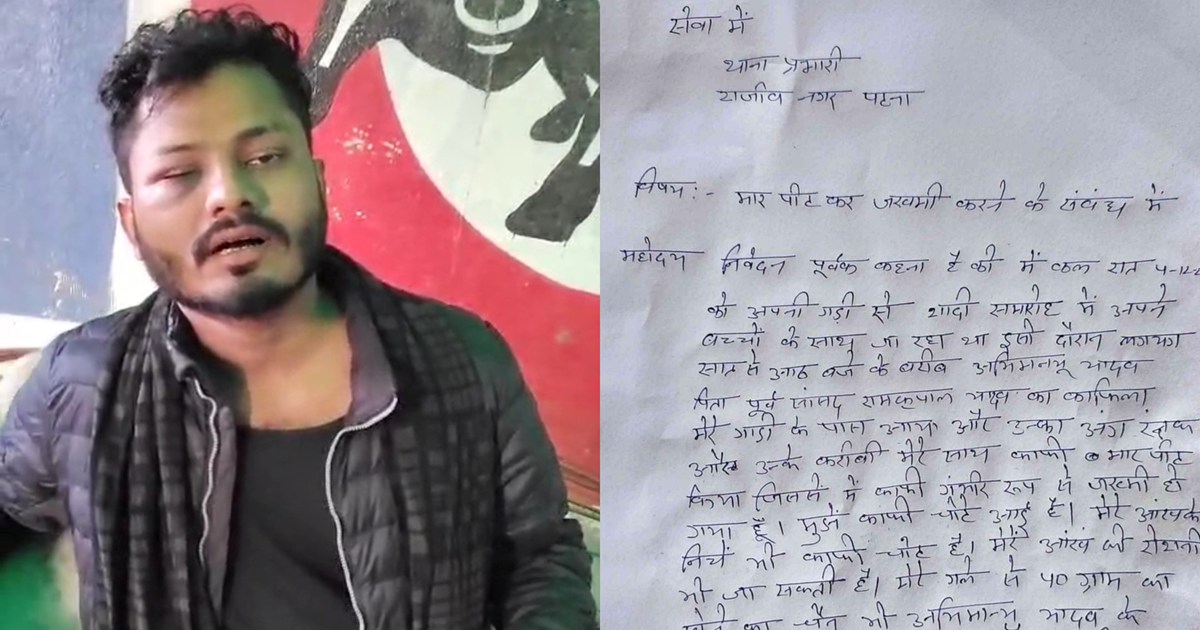 सेवा में
थाना प्रभारी
राजीव नगर पटना
विषय:- मार पीट कर जखमी करने के संबंध में
महोदय निवेदन पूर्वक कहना है की में कल रात 4-12-2
को अपनी गड़ी से शादी समारोह में अपने
बच्चों के साथ जा रहा था इसी दौरान लगभग
सात से आठ बजे के करीब अभिमान्यू यादव
पिता पूर्व सांसद रामकृपाल यादव का काफिला
मेरे गाड़ी के पास आया और उनका अंग रक्षक
और उनके करीबी मेरे साथ काफी मार पीट
किया जिससे में काफी गंभीर रूप से जखमी हो
गया हूँ। मुझे काफी चोटे आई है। मेरे आंख के
निचें भी काफी चोट है। मेरे आंख की रोशनी
भी जा सकती है। मेरे गले से 40 ग्राम का
का चैन भी अभिमान्यु यादव के